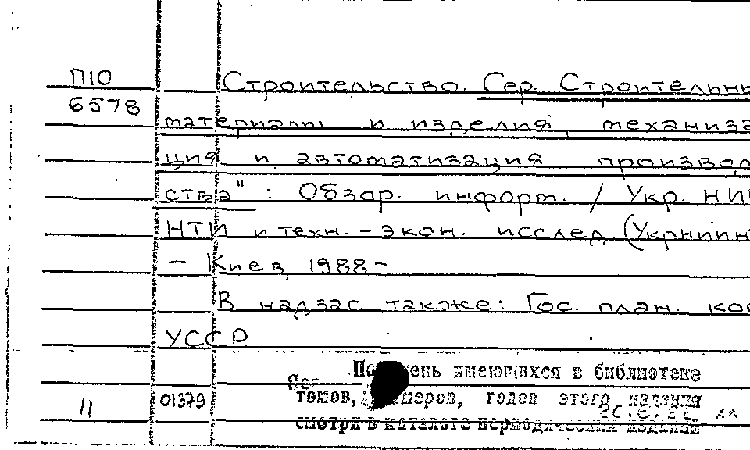 П10 Строительство. Сер. Строительн
6578
материалы и изделия, механиза
ция и автоматизация производ
ства" : Обзор. информ. / Укр. НИИ
НТИ и техн. - экон. исслед. (Укрниин
- Киев, 1988 -
В надзаг. также: Гос. план. ко
УССР
имеющихся в библиотеке
томов, номеров, годов этого издания
11 01379
смотри в каталоге периодических изданий